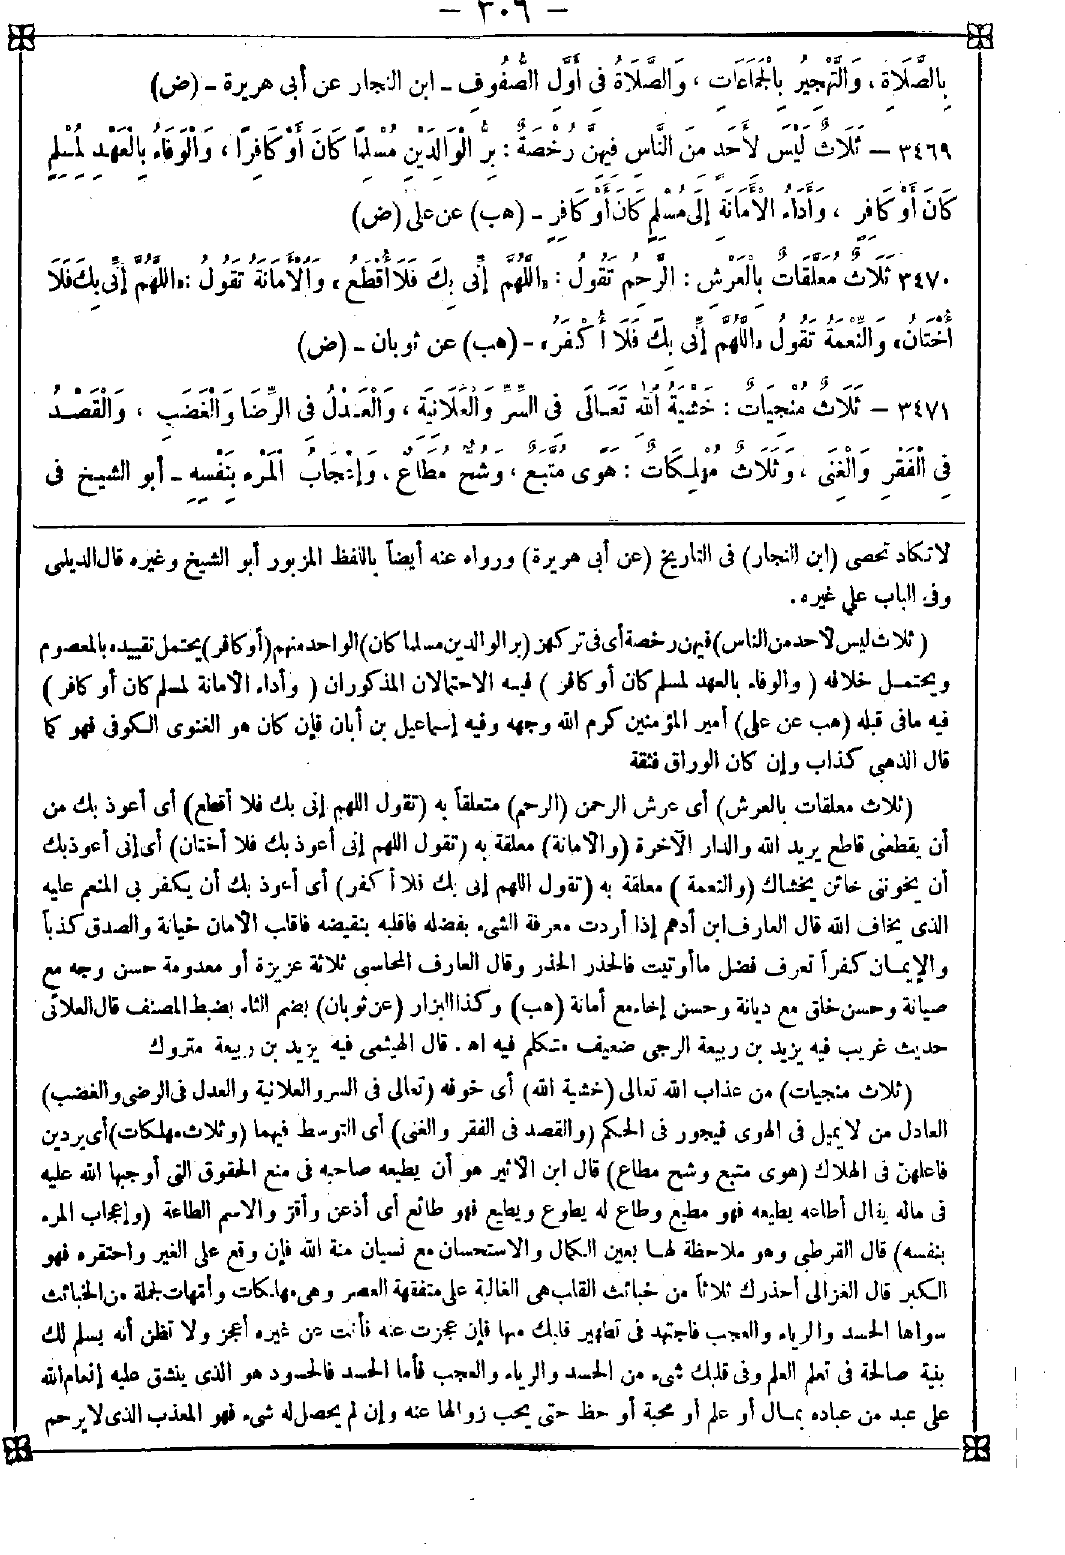 — ٣٠٦ —
بِالصَّلَاةِ، وَالتَّهْجِيرُ بِالْجَمَاعَاتِ، وَالصَّلَاةُ فِي أَوَّلِ الصُّفُوفِ ـ ابن النجار عن أبى هريرة ـ (ض)
٣٤٦٩ — ثَلَاثٌ لَيْسَ لِأَحَدٍ مِنَ النَّاسِ فِيهِنَّ رُخْصَةٌ: بِرُّ الْوَالِدَيْنِ مُسْلِمًا كَانَ أَوْ كَافِرًا، وَالْوَفَاءُ بِالْعَهْدِ لِمُسْلِمٍ
كَانَ أَوْ كَافِرٍ، وَأَدَاءُ الْأَمَانَةِ إِلَى مُسْلِمٍ كَانَ أَوْ كَافِرٍ ـ (هب) عن على (ض)
٣٤٧٠ ثَلَاثٌ مُعَلَّقَاتٌ بِالْعَرْشِ: الرَّحِمُ تَقُولُ: «اللَّهُمَّ إِنِّي بِكَ فَلَا أُقْطَعُ»، وَالْأَمَانَةُ تَقُولُ: «اللَّهُمَّ إِنِّي بِكَ فَلَا
أُخْتَانُ»، وَالنِّعْمَةُ تَقُولُ «اللَّهُمَّ إِنِّي بِكَ فَلَا أُكْفَرُ» ـ (هب) عن ثوبان ـ (ض)
٣٤٧١ — ثَلَاثٌ مُنْجِيَاتٌ: خَشْيَةُ اللهِ تَعَالَى فِي السِّرِّ وَالْعَلَانِيَةِ، وَالْعَدْلُ فِي الرِّضَا وَالْغَضَبِ، وَالْقَصْدُ
فِي الْفَقْرِ وَالْغِنَى، وَثَلَاثٌ مُهْلِكَاتٌ: هَوًى مُتَّبَعٌ، وَشُحٌّ مُطَاعٌ، وَإِعْجَابُ الْمَرْءِ بِنَفْسِهِ ـ أبو الشيخ فى
لا تكاد تحصى (ابن النجار) فى التاريخ (عن أبى هريرة) ورواه عنه أيضاً باللفظ المزبور أبو الشيخ وغيره قال الديلمى
وفى الباب على غيره.
(ثلاث ليس لأحد من الناس) فيهن رخصة أى فى تركهن (بر الوالدين مسلما كان) الواحد منهم (أو كافر) يحتمل تقييده بالمعصوم
ويحتمل خلافه (والوفاء بالعهد لمسلم كان أو كافر) فيه الاحتمالان المذكوران (وأداء الأمانة لمسلم كان أو كافر)
فيه مافى قبله (هب عن على) أمير المؤمنين كرم الله وجهه وفيه إسماعيل بن أبان فإن كان هو الغنوى الكوفى فهو كما
قال الذهبى كذاب وإن كان الوراق فثقة
(ثلاث معلقات بالعرش) أى عرش الرحمن (الرحم) متعلقاً به (تقول اللهم إنى بك فلا أقطع) أى أعوذ بك من
أن يقطعنى قاطع يريد الله والدار الآخرة (والأمانة) معلقة به (تقول اللهم إنى أعوذ بك فلا أختان) أى إنى أعوذ بك
أن يخوننى خائن يخشاك (والنعمة) معلقة به (تقول اللهم إنى بك فلا أكفر) أى أعوذ بك أن يكفر بى المنعم عليه
الذى يخاف الله قال العارف ابن أدهم إذا أردت معرفة الشىء بفضله فاقلبه بنقيضه فاقلب الأمان خيانة والصدق كذباً
والإيمان كفراً تعرف فضل ماأوتيت فالحذر الحذر وقال العارف المحاسبى ثلاثة عزيزة أو معدومة حسن وجه مع
صيانة وحسن خلق مع ديانة وحسن إخاء مع أمانة (هب) وكذا البزار (عن ثوبان) بضم الثاء بضبط المصنف قال العلائى
حديث غريب فيه يزيد بن ربيعة الرحبى ضعيف متكلم فيه اه . قال الهيثمى فيه يزيد بن ربيعة متروك
(ثلاث منجيات) من عذاب الله تعالى (خشية الله) أى خوفه (تعالى فى السر والعلانية والعدل فى الرضى والغضب)
العادل من لا يميل فى الهوى فيجور فى الحكم (والقصد فى الفقر والغنى) أى التوسط فيهما (وثلاث مهلكات) أى يردين
فاعلهن فى الهلاك (هوى متبع وشح مطاع) قال ابن الأثير هو أن يطيعه صاحبه فى منع الحقوق التى أوجبها الله عليه
فى ماله يقال أطاعه يطيعه فهو مطيع وطاع له يطوع ويطيع فهو طائع أى أذعن وأقر والاسم الطاعة (وإعجاب المرء
بنفسه) قال القرطبى وهو ملاحظة لها بعين الكمال والاستحسان مع نسيان منة الله فإن وقع على الغير واحتقره فهو
الكبر قال الغزالى أحذرك ثلاثاً من خبائث القلب هى الغالبة على متفقهة العصر وهى مهلكات وأمهات لجملة من الخبائث
سواها الحسد والرياء والعجب فاجتهد فى تطهير قلبك منها فإن عجزت عنه فأنت عن غيره أعجز ولا تظن أنه يسلم لك
بنية صالحة فى تعلم العلم وفى قلبك شىء من الحسد والرياء والعجب فأما الحسد فالحسود هو الذى ينشق عليه إنعام الله
على عبد من عباده بمال أو علم أو محبة أو حظ حتى يحب زوالها عنه وإن لم يحصل له شىء فهو المعذب الذى لا يرحم